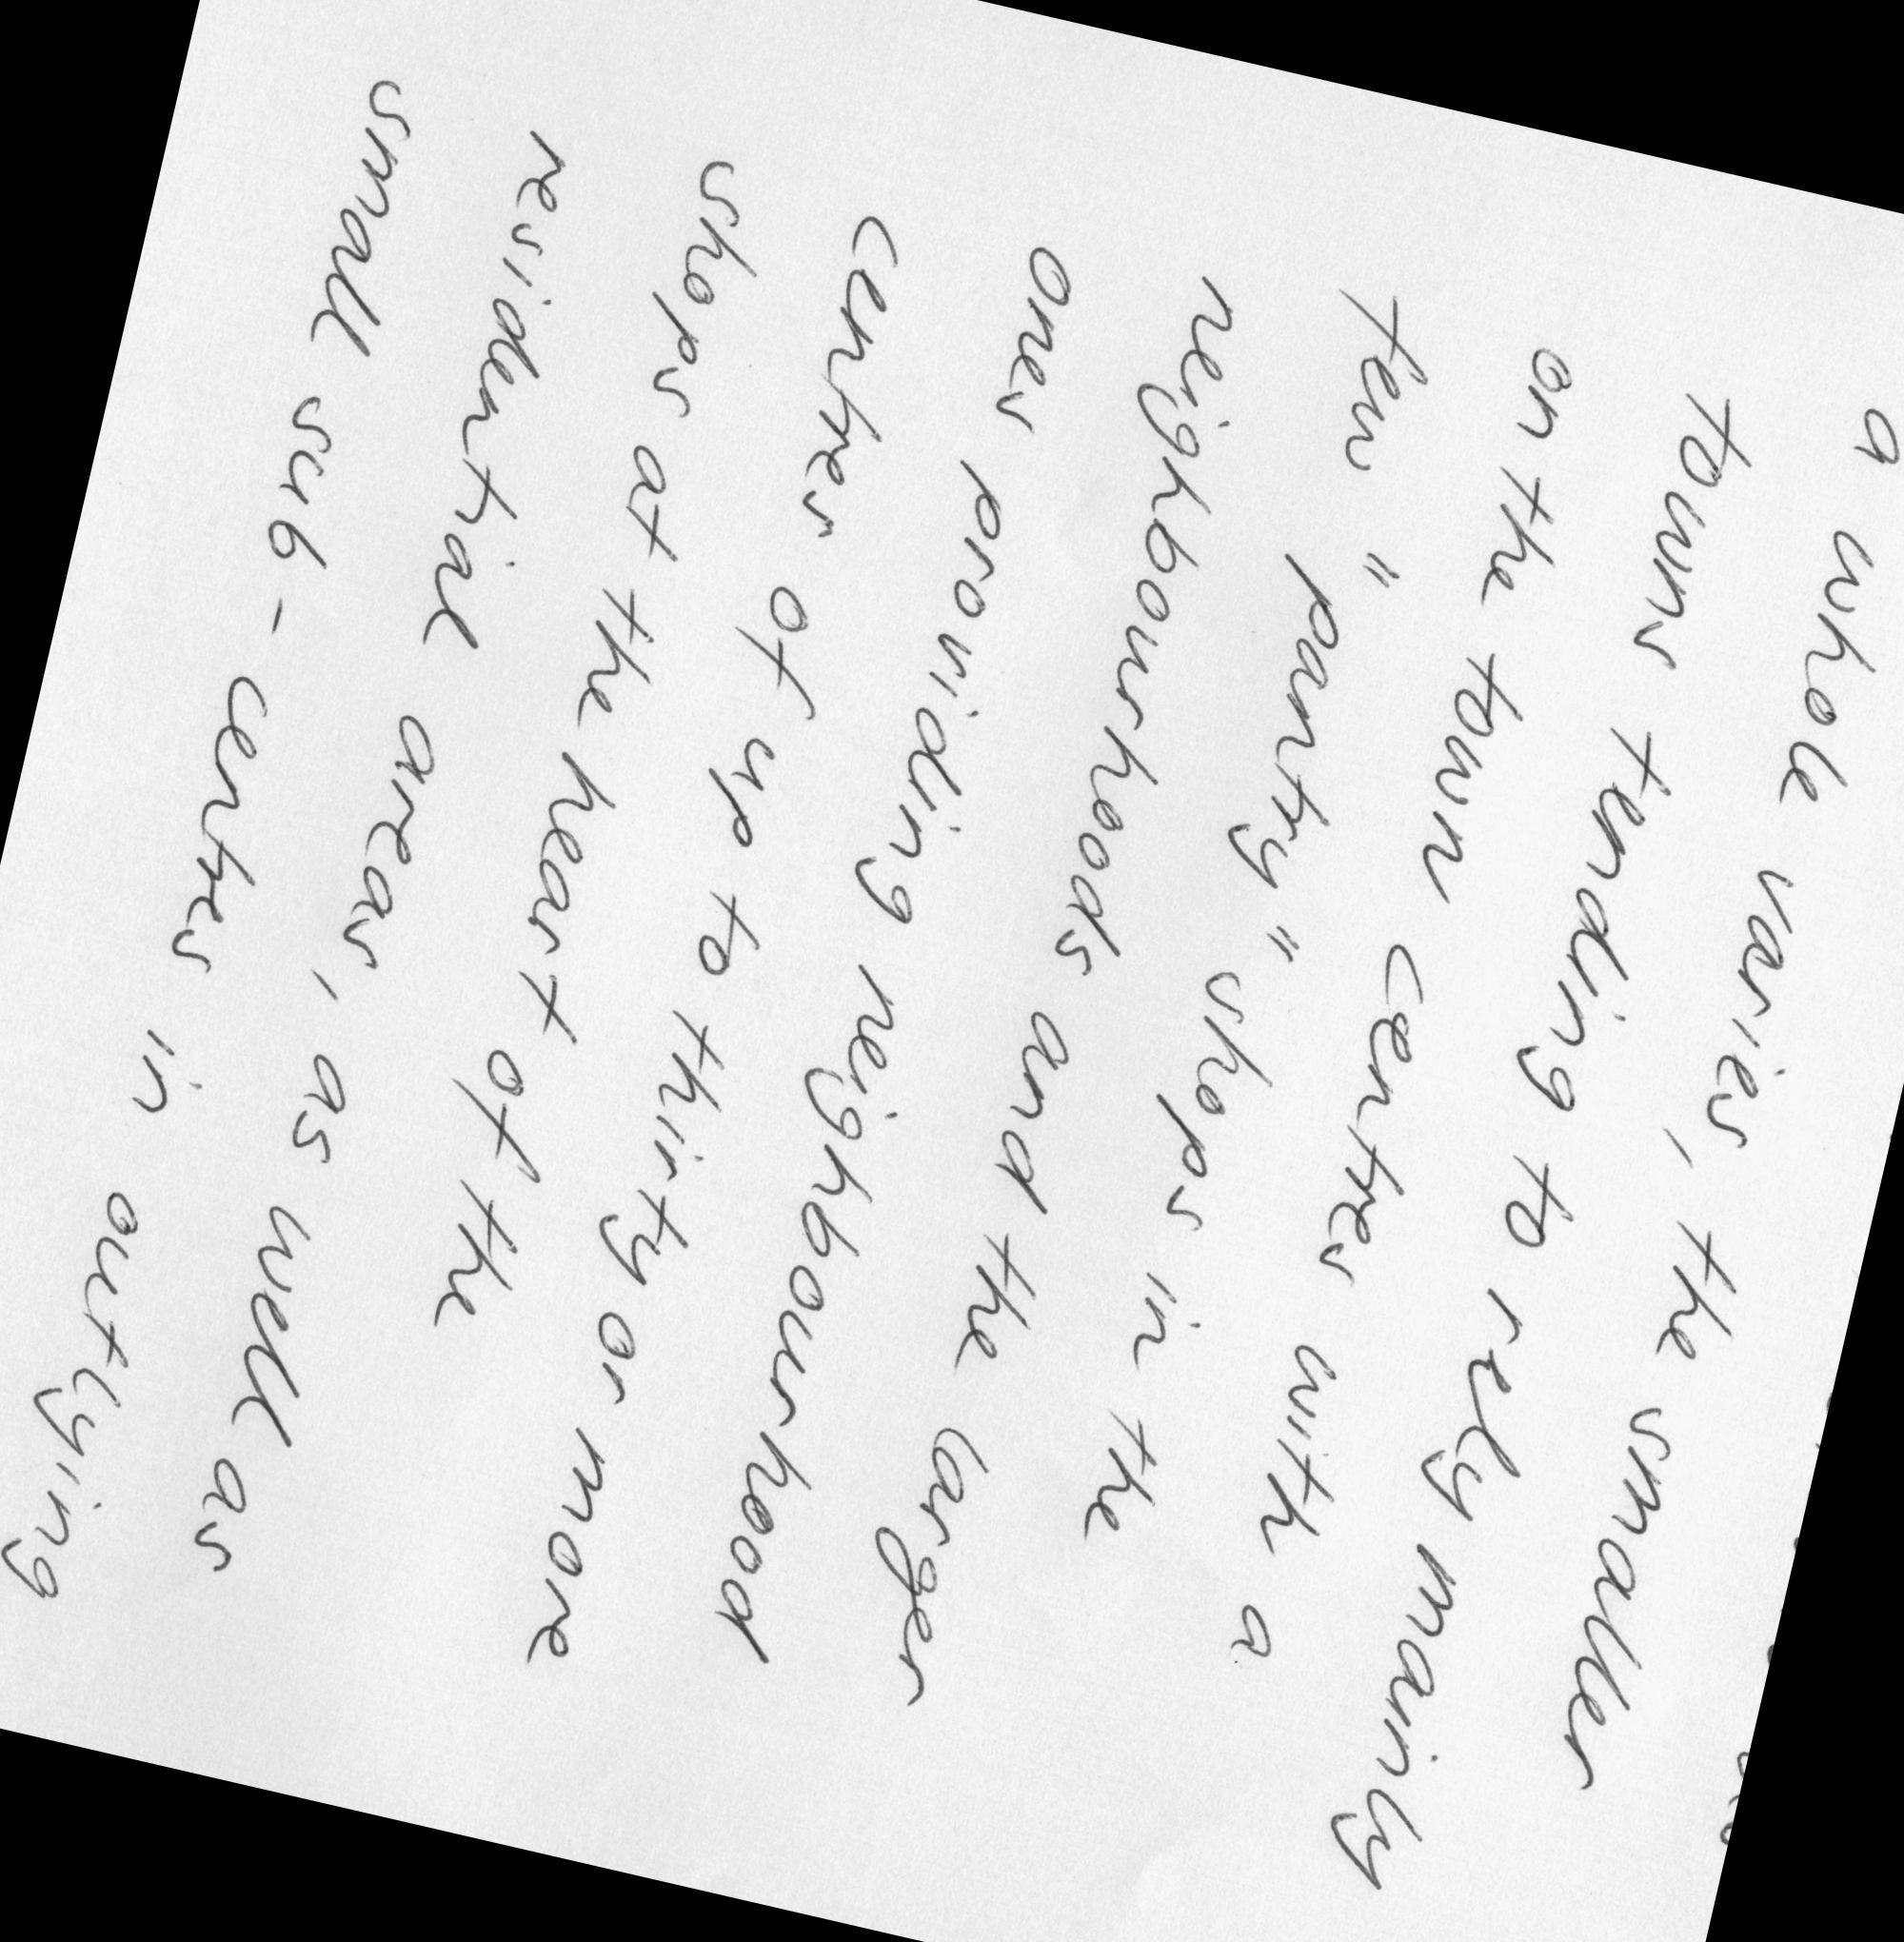 a whole varies, the smaller
towns tending to rely mainly
on the town centres with a
few "pantry" shops in the
neighbourshoods and the larger
ones providing neighbourhood
centres of up to thirty or more
shops at the heart of the
residential areas, as well as
small sub-centres in outlying